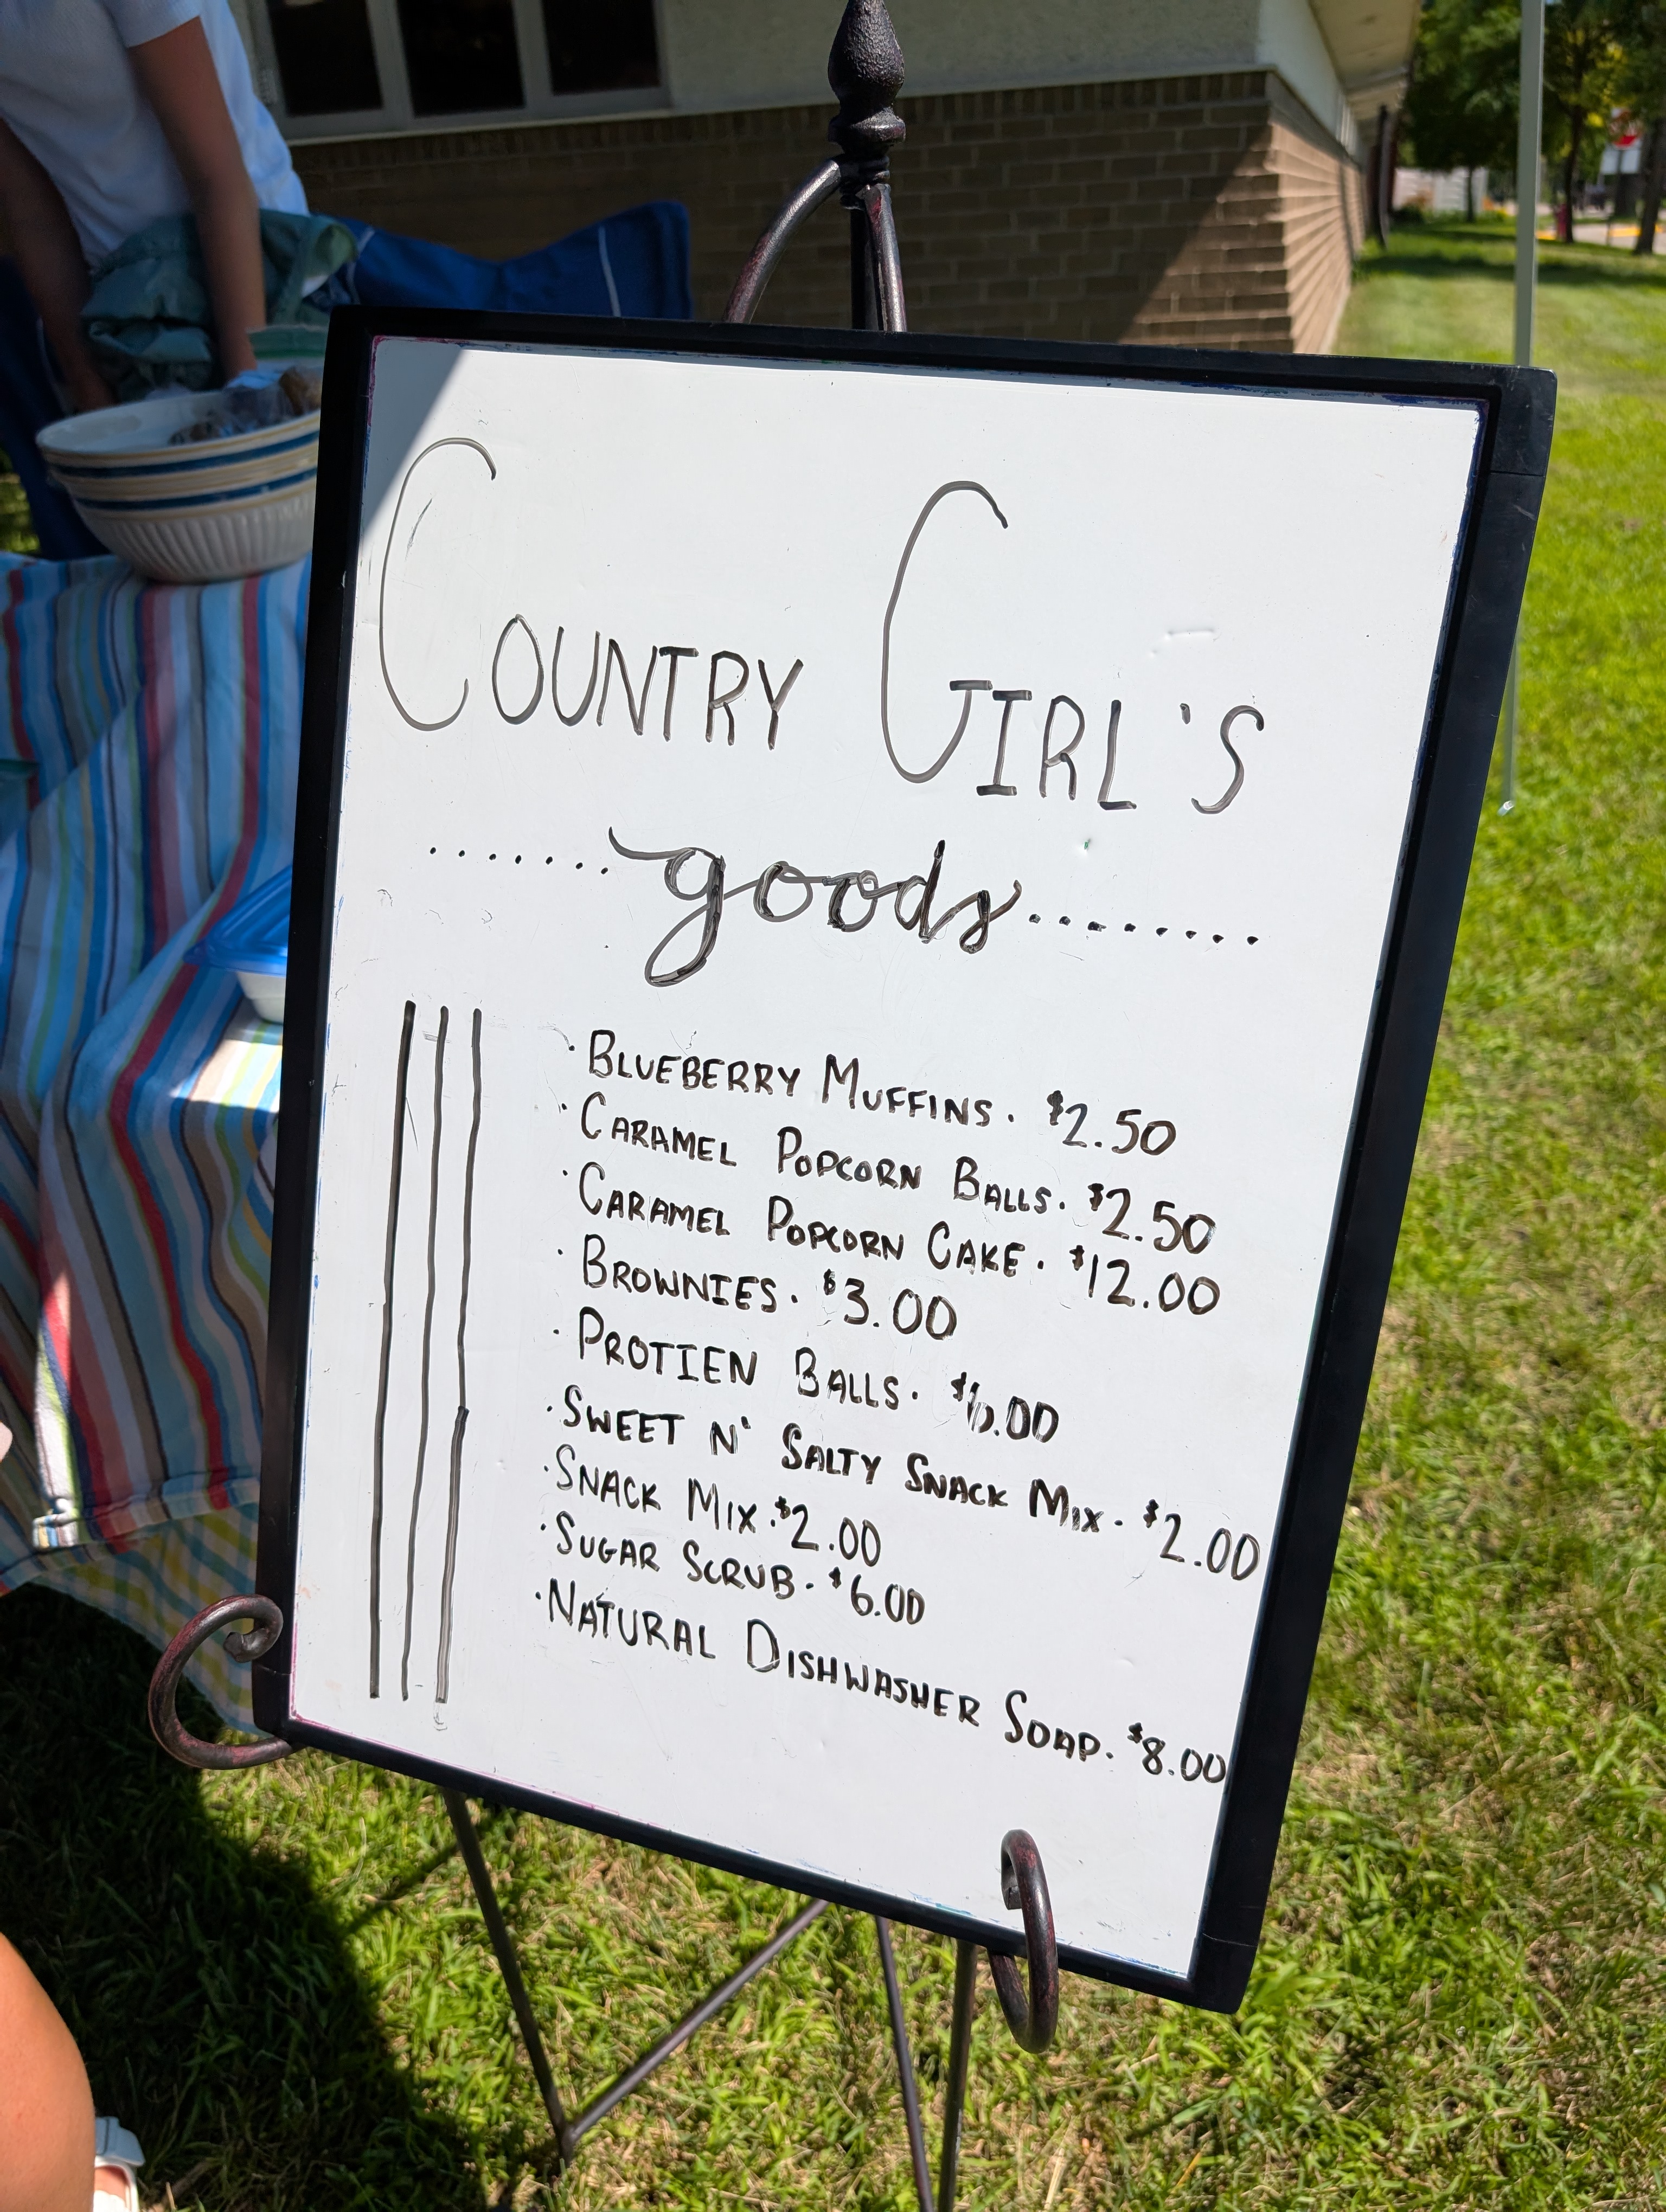 COUNTRY GIRL'S
.......goods.........
· BLUEBERRY MUFFINS. $2.50
· CARAMEL POPCORN BALLS. $2.50
· CARAMEL POPCORN CAKE. $12.00
· BROWNIES. $3.00
· PROTIEN BALLS.
· SWEET N' SALTY SNACK MIX. $2.00
· SNACK MIX. $2.00
· SUGAR SCRUB. $6.00
· NATURAL DISHWASHER SOAP. $8.00